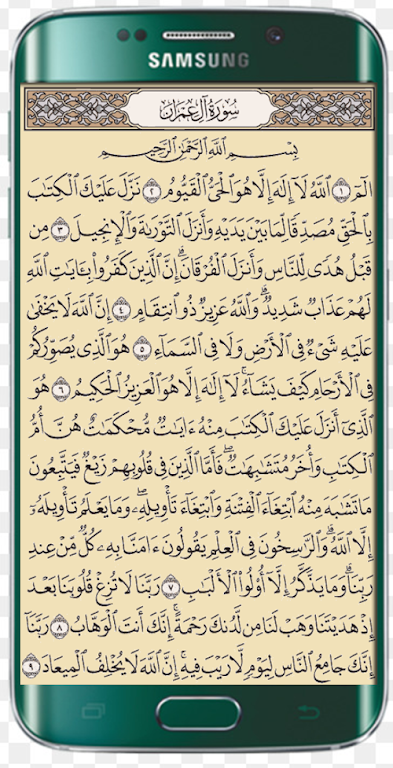 SAMSUNG
سُورَةُ آلِ عِمْرَانَ
بِسْمِ ٱللَّهِ ٱلرَّحْمَٰنِ ٱلرَّحِيمِ
الٓمٓ ١ ٱللَّهُ لَآ إِلَٰهَ إِلَّا هُوَ ٱلْحَىُّ ٱلْقَيُّومُ ٢ نَزَّلَ عَلَيْكَ ٱلْكِتَٰبَ
بِٱلْحَقِّ مُصَدِّقًا لِّمَا بَيْنَ يَدَيْهِ وَأَنزَلَ ٱلتَّوْرَىٰةَ وَٱلْإِنجِيلَ ٣ مِن
قَبْلُ هُدًى لِّلنَّاسِ وَأَنزَلَ ٱلْفُرْقَانَ ۗ إِنَّ ٱلَّذِينَ كَفَرُوا۟ بِـَٔايَٰتِ ٱللَّهِ
لَهُمْ عَذَابٌ شَدِيدٌ ۗ وَٱللَّهُ عَزِيزٌ ذُو ٱنتِقَامٍ ٤ إِنَّ ٱللَّهَ لَا يَخْفَىٰ
عَلَيْهِ شَىْءٌ فِى ٱلْأَرْضِ وَلَا فِى ٱلسَّمَآءِ ٥ هُوَ ٱلَّذِى يُصَوِّرُكُمْ
فِى ٱلْأَرْحَامِ كَيْفَ يَشَآءُ ۚ لَآ إِلَٰهَ إِلَّا هُوَ ٱلْعَزِيزُ ٱلْحَكِيمُ ٦ هُوَ
ٱلَّذِىٓ أَنزَلَ عَلَيْكَ ٱلْكِتَٰبَ مِنْهُ ءَايَٰتٌ مُّحْكَمَٰتٌ هُنَّ أُمُّ
ٱلْكِتَٰبِ وَأُخَرُ مُتَشَٰبِهَٰتٌ ۖ فَأَمَّا ٱلَّذِينَ فِى قُلُوبِهِمْ زَيْغٌ فَيَتَّبِعُونَ
مَا تَشَٰبَهَ مِنْهُ ٱبْتِغَآءَ ٱلْفِتْنَةِ وَٱبْتِغَآءَ تَأْوِيلِهِۦ ۗ وَمَا يَعْلَمُ تَأْوِيلَهُۥٓ
إِلَّا ٱللَّهُ ۗ وَٱلرَّٰسِخُونَ فِى ٱلْعِلْمِ يَقُولُونَ ءَامَنَّا بِهِۦ كُلٌّ مِّنْ عِندِ
رَبِّنَا ۗ وَمَا يَذَّكَّرُ إِلَّآ أُو۟لُوا۟ ٱلْأَلْبَٰبِ ٧ رَبَّنَا لَا تُزِغْ قُلُوبَنَا بَعْدَ
إِذْ هَدَيْتَنَا وَهَبْ لَنَا مِن لَّدُنكَ رَحْمَةً ۚ إِنَّكَ أَنتَ ٱلْوَهَّابُ ٨ رَبَّنَآ
إِنَّكَ جَامِعُ ٱلنَّاسِ لِيَوْمٍ لَّا رَيْبَ فِيهِ ۚ إِنَّ ٱللَّهَ لَا يُخْلِفُ ٱلْمِيعَادَ ٩